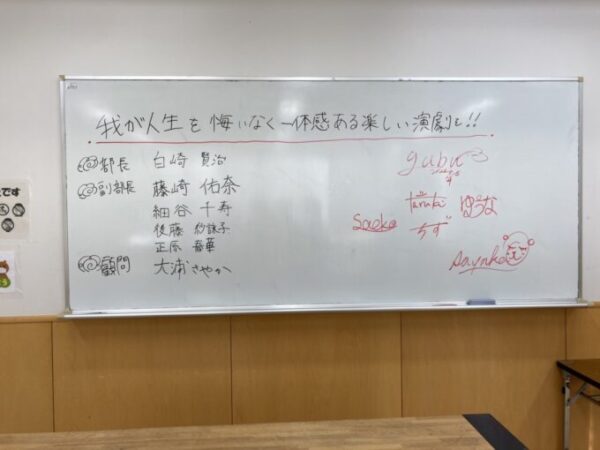 我が人生を悔いなく一体感ある楽しい演劇を!!
部長 白崎 賢治
副部長 藤崎 佑奈
細谷 千寿
後藤 紗詠子
正原 春華
顧問 大浦さやか
ゆうな
Saeko ちず
Sayaka
です